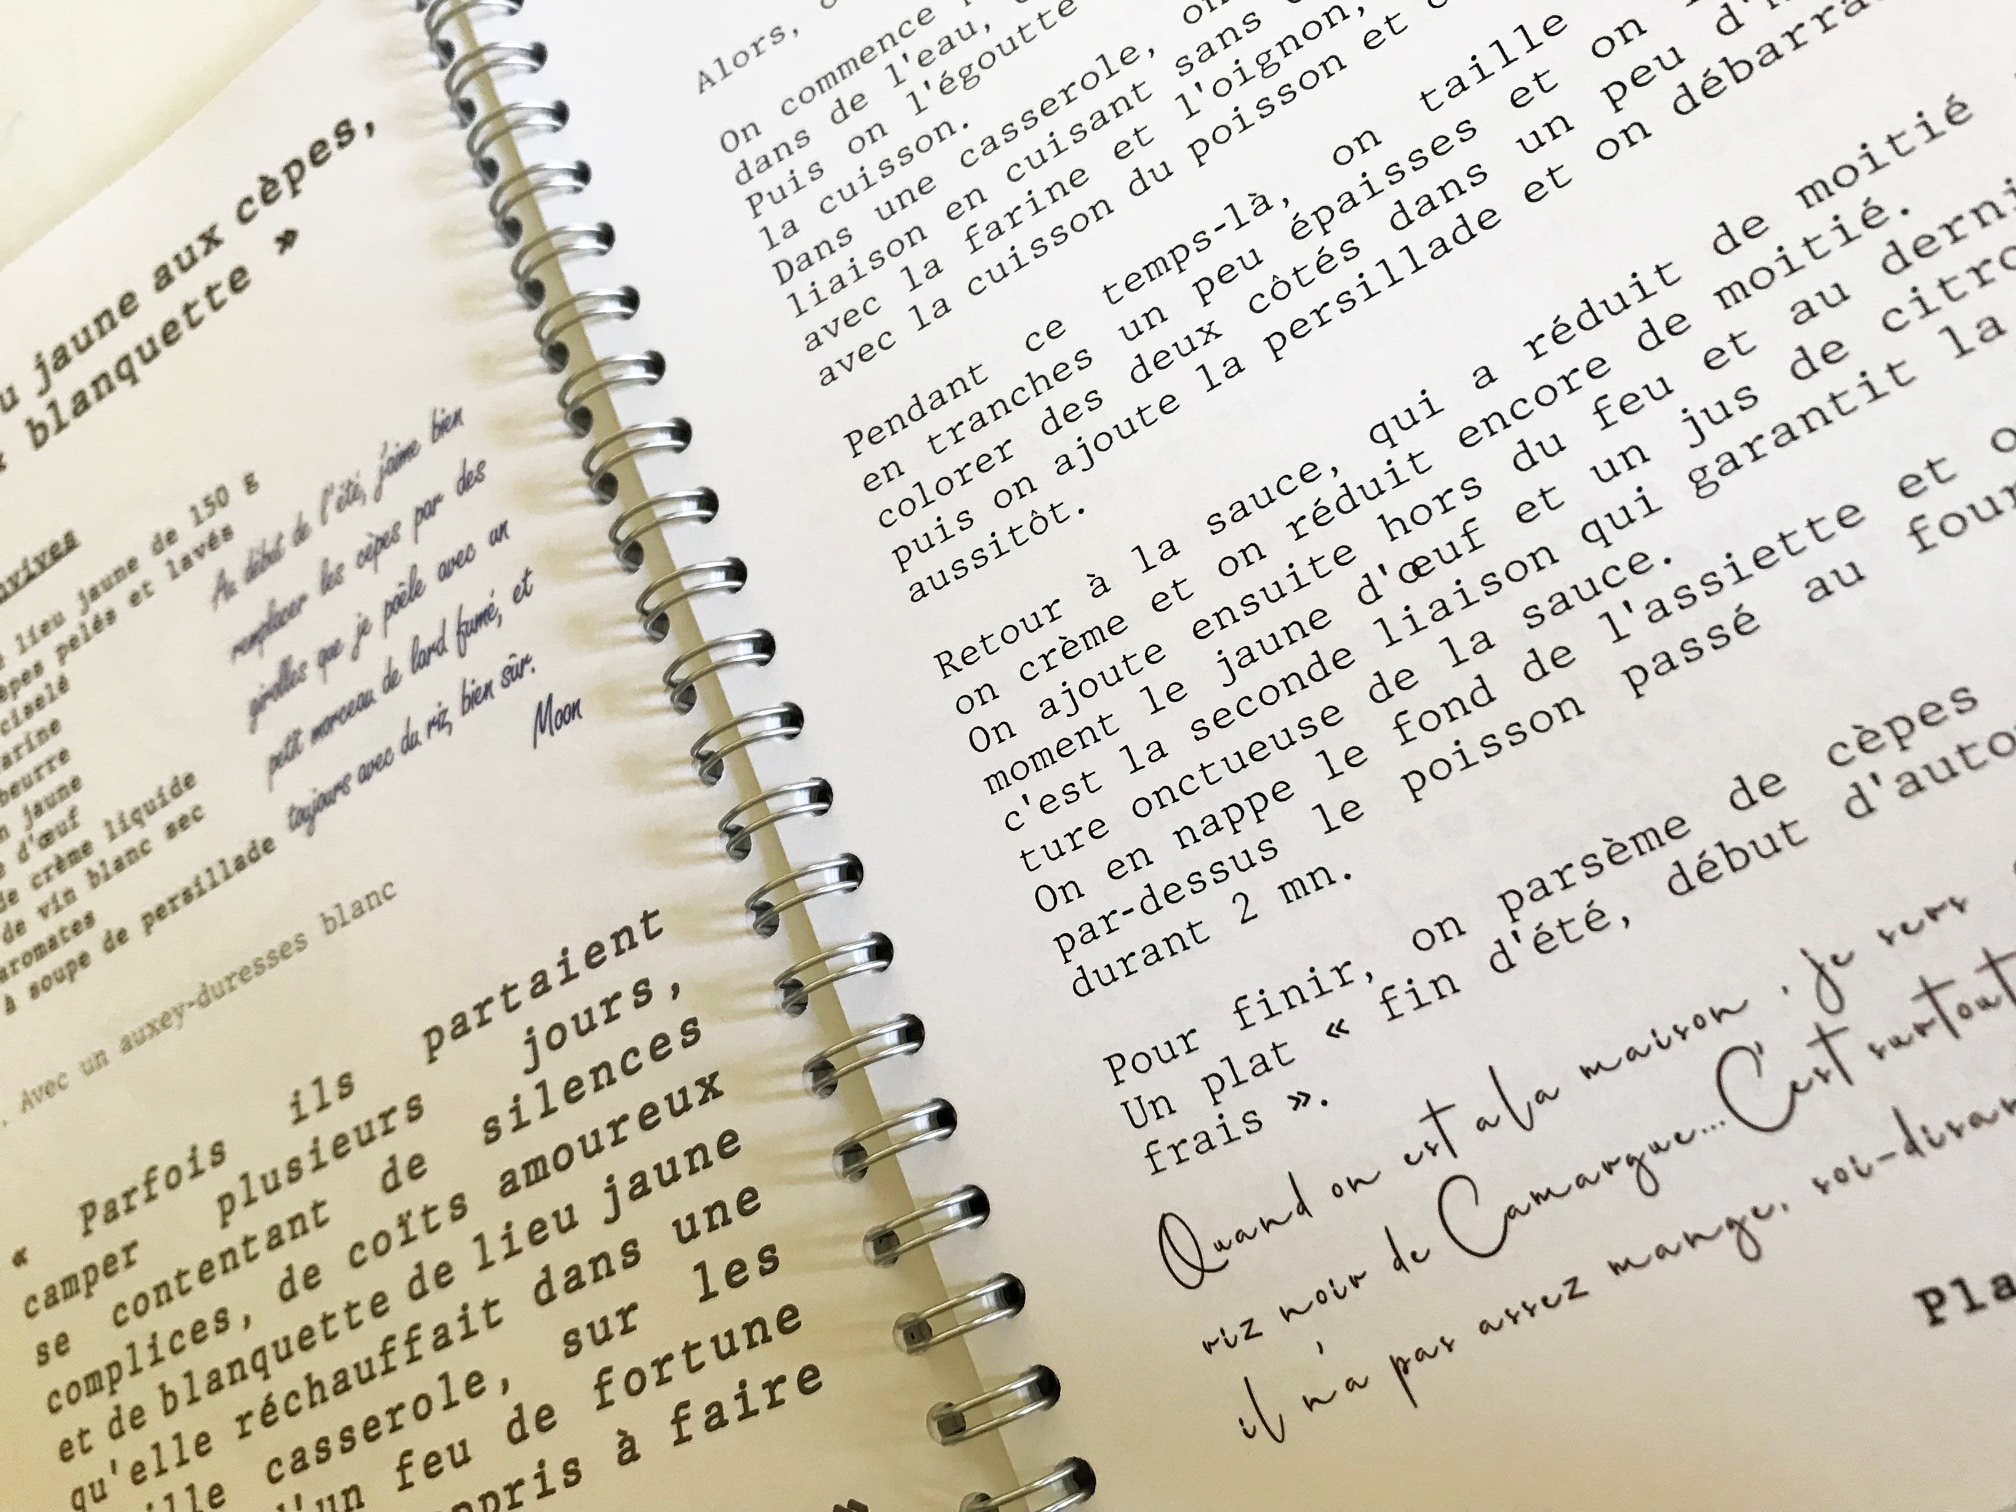 jaune aux cèpes,
« blanquette »
lieu jaune de 150 g
pelés et lavés
ciselé
beurre
jaune
d'œuf
de crème liquide
de vin blanc sec
aromates
à soupe de persillade
Au début de l'été, j'aime bien
remplacer les cèpes par des
girolles que je poêle avec un
petit morceau de lard fumé, et
toujours avec du riz, bien sûr.
Moon
Avec un auxey-duresses blanc
« Parfois ils partaient
camper plusieurs jours,
se contentant de silences
complices, de coïts amoureux
et de blanquette de lieu jaune
qu'elle réchauffait dans une
casserole, sur les
d'un feu de fortune
à faire
»
Alors,
On commence
dans de l'eau,
Puis on l'égoutte
la cuisson.
Dans une casserole, on
liaison en cuisant sans
avec la farine et l'oignon,
avec la cuisson du poisson et
Pendant ce temps-là, on taille
en tranches un peu épaisses et on
colorer des deux côtés dans un peu
puis on ajoute la persillade et on
aussitôt.
Retour à la sauce, qui a réduit de moitié
on crème et on réduit encore de moitié.
On ajoute ensuite hors du feu et au
moment le jaune d'œuf et un jus de
c'est la seconde liaison qui garantit la
ture onctueuse de la sauce.
On en nappe le fond de l'assiette et
par-dessus le poisson passé au
durant 2 mn.
Pour finir, on parsème de cèpes
Un plat « fin d'été, début
frais ».
Quand on est a la maison, je sers
riz noir de Camargue... C'est surtout
il n'a pas assez mange,